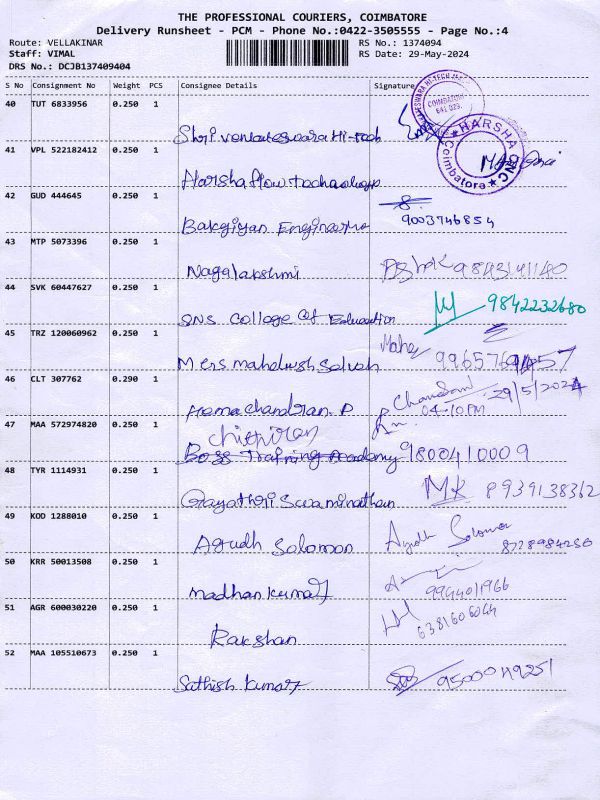 THE PROFESSIONAL COURIERS, COIMBATORE
Delivery Runsheet - PCM - Phone No.:0422-3505555 - Page No.:4
Route: VELLAKINAR RS No.: 1374094
Staff: VIMAL RS Date: 29-May-2024
DRS No.: DCJB137409404
S No Consignment No Weight PCS Consignee Details Signature
40 TUT 6833956 0.250 1
Shri venkateswara Hi-tech
COIMBATORE
641 029.
41 VPL 522182412 0.250 1
Harsha flow technology
HARSHA INC
Coimbatore
42 GUD 444645 0.250 1
Bakgiyan Engineering 9003746854
43 MTP 5073396 0.250 1
Nagalakshmi Ashok 9843141140
44 SVK 60447627 0.250 1
SNS College of Education 9842232680
45 TRZ 120060962 0.250 1
Mers mahalwsh Selvah
46 CLT 307762 0.290 1
Hemachandran. P Chandran 29/5/2024
04-10 PM
47 MAA 572974820 0.250 1
Boss Training Academy 9800410009
48 TYR 1114931 0.250 1
Gayathri Swaminathan MK 8939138362
49 KOD 1288010 0.250 1
Agudh Solomon Ayudh Solomon
8728984250
50 KRR 50013508 0.250 1
madhan kumar 9994401966
51 AGR 600030220 0.250 1
Rakshan 6381606064
52 MAA 105510673 0.250 1
Sathish kumar 9500049251